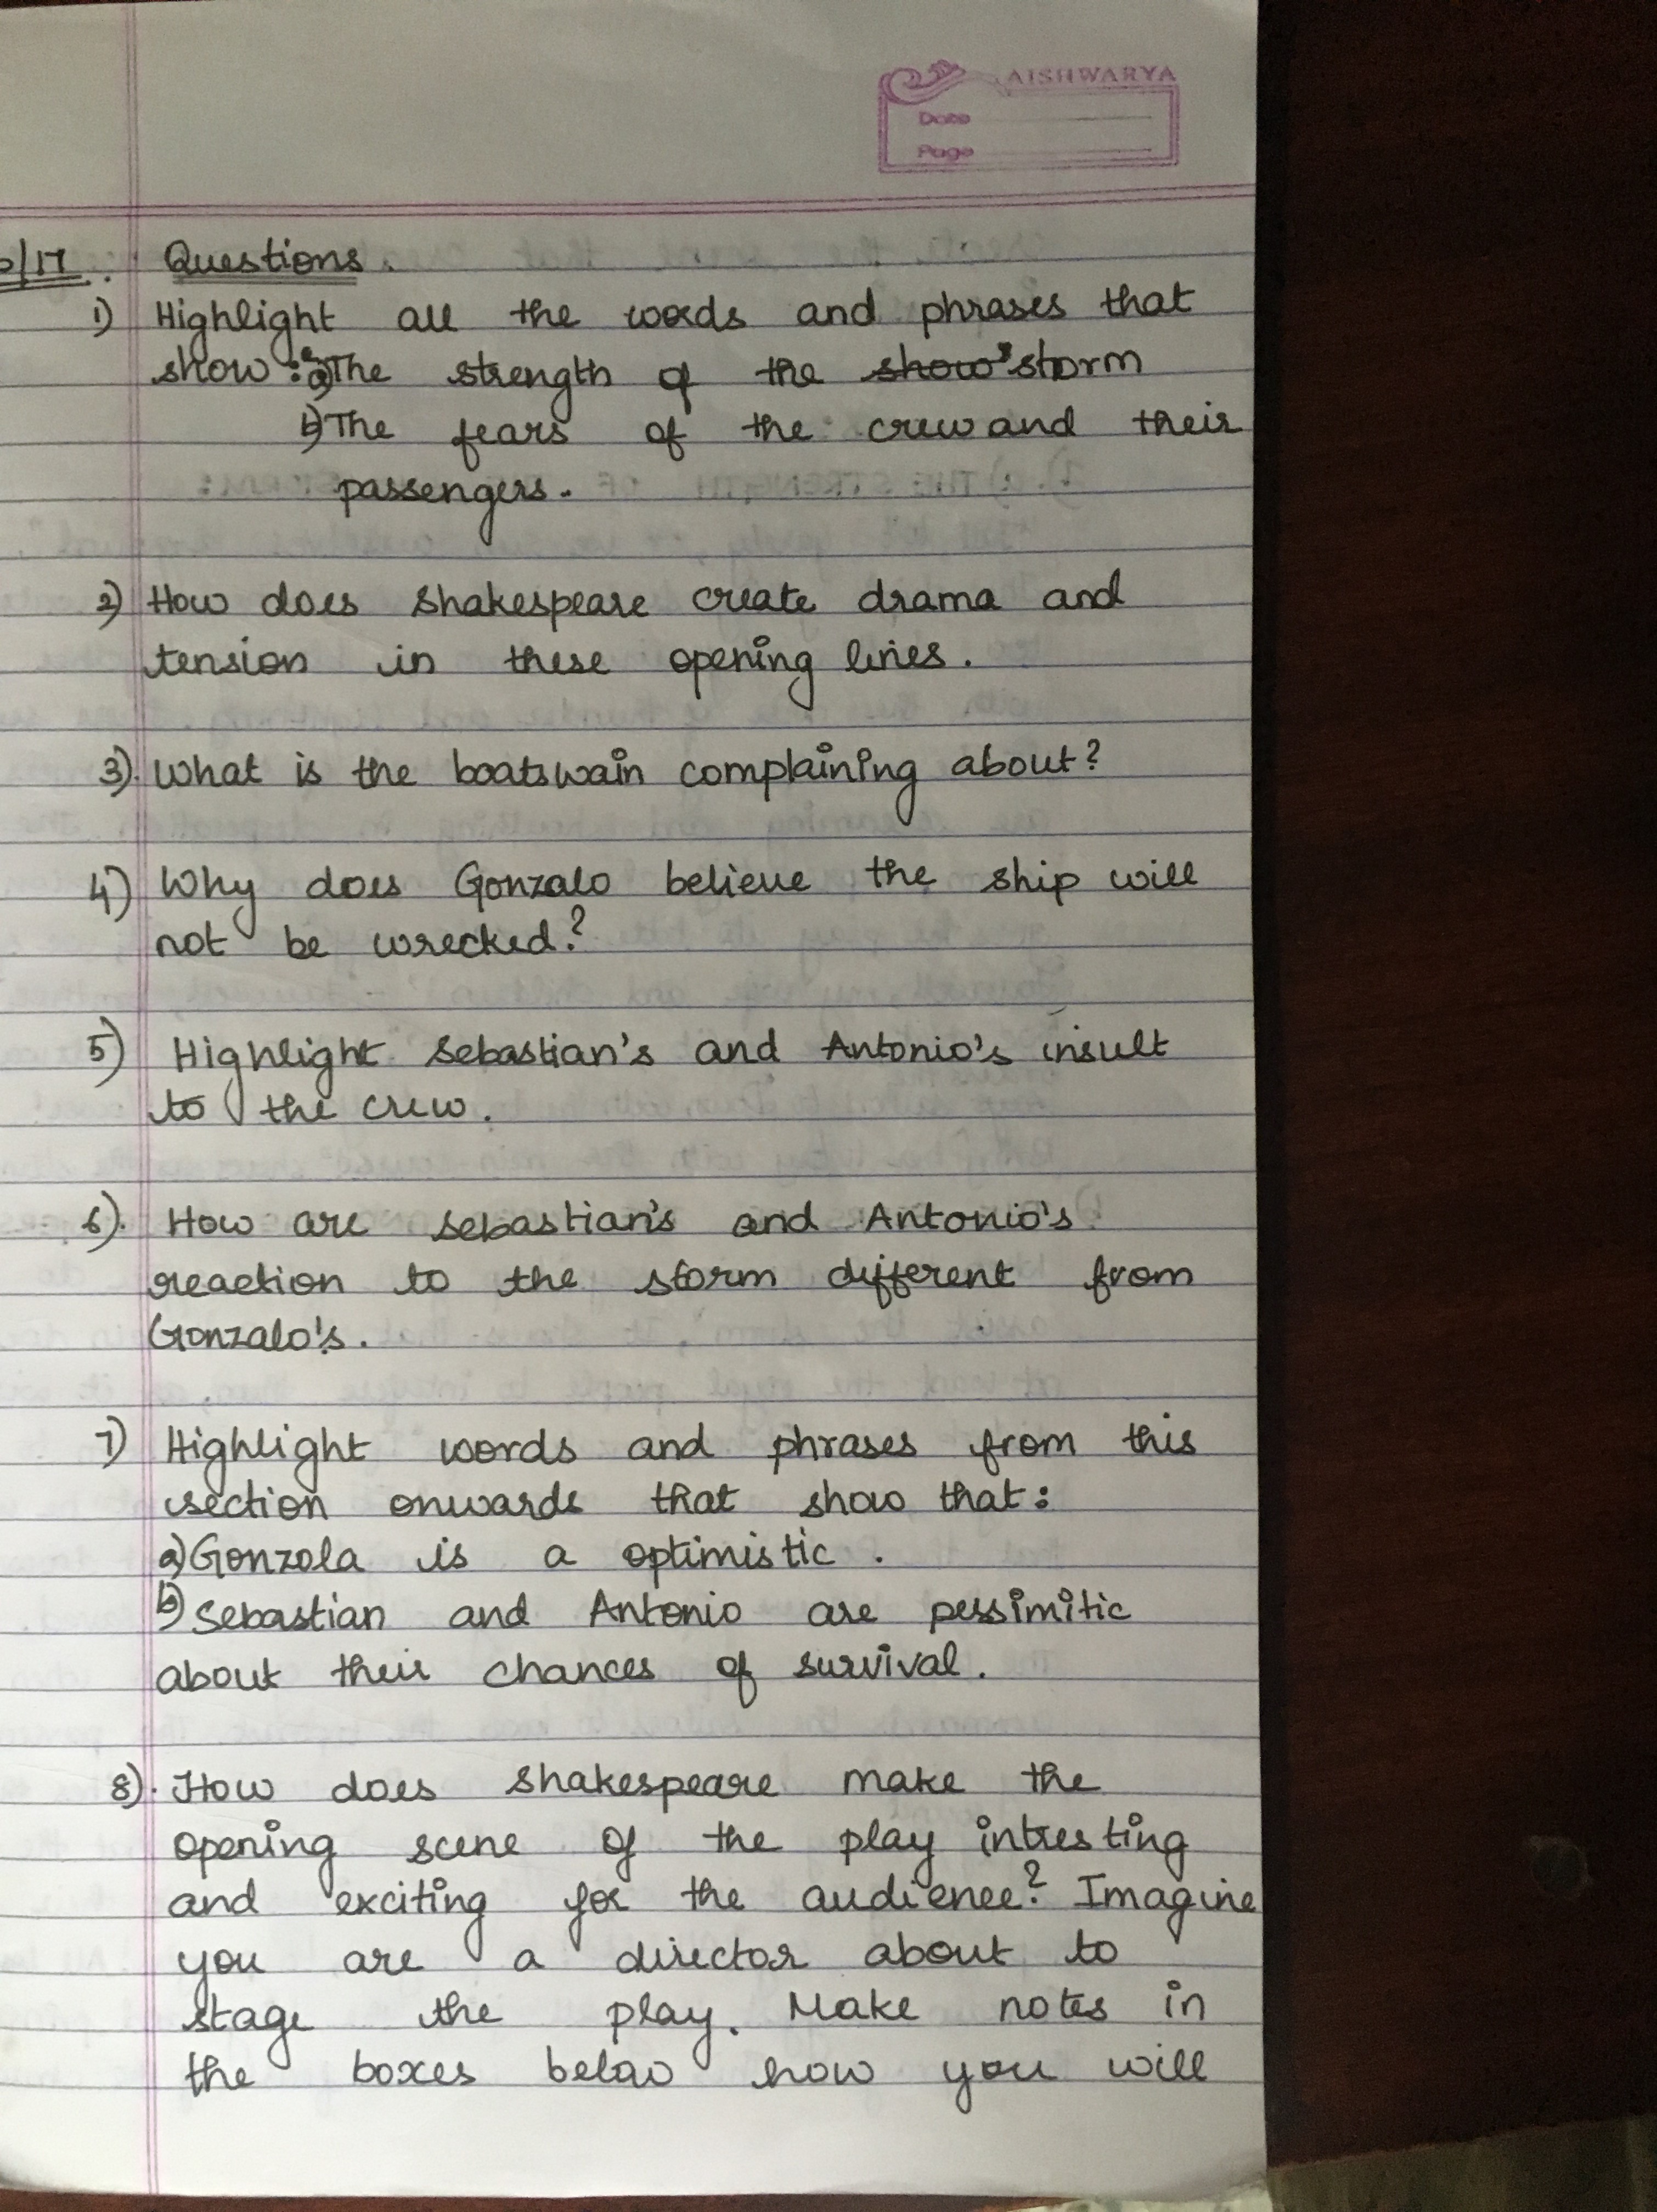 AISHWARYA
Date
Page
/17. Questions.
1) Highlight all the words and phrases that
show: a) The strength of the show storm
b) The fears of the crew and their
passengers.
2) How does Shakespeare create drama and
tension in these opening lines.
3). What is the boatswain complaining about?
4) Why does Gonzalo believe the ship will
not be wrecked?
5) Highlight Sebastian's and Antonio's insult
to the crew.
6). How are Sebastian's and Antonio's
reaction to the storm different from
Gonzalo's.
7) Highlight words and phrases from this
section onwards that show that:
a) Gonzola is a optimistic.
b) Sebastian and Antonio are pessimitic
about their chances of survival.
8). How does Shakespeare make the
opening scene of the play intresting
and exciting for the audience? Imagine
you are a director about to
stage the play. Make notes in
the boxes below how you will